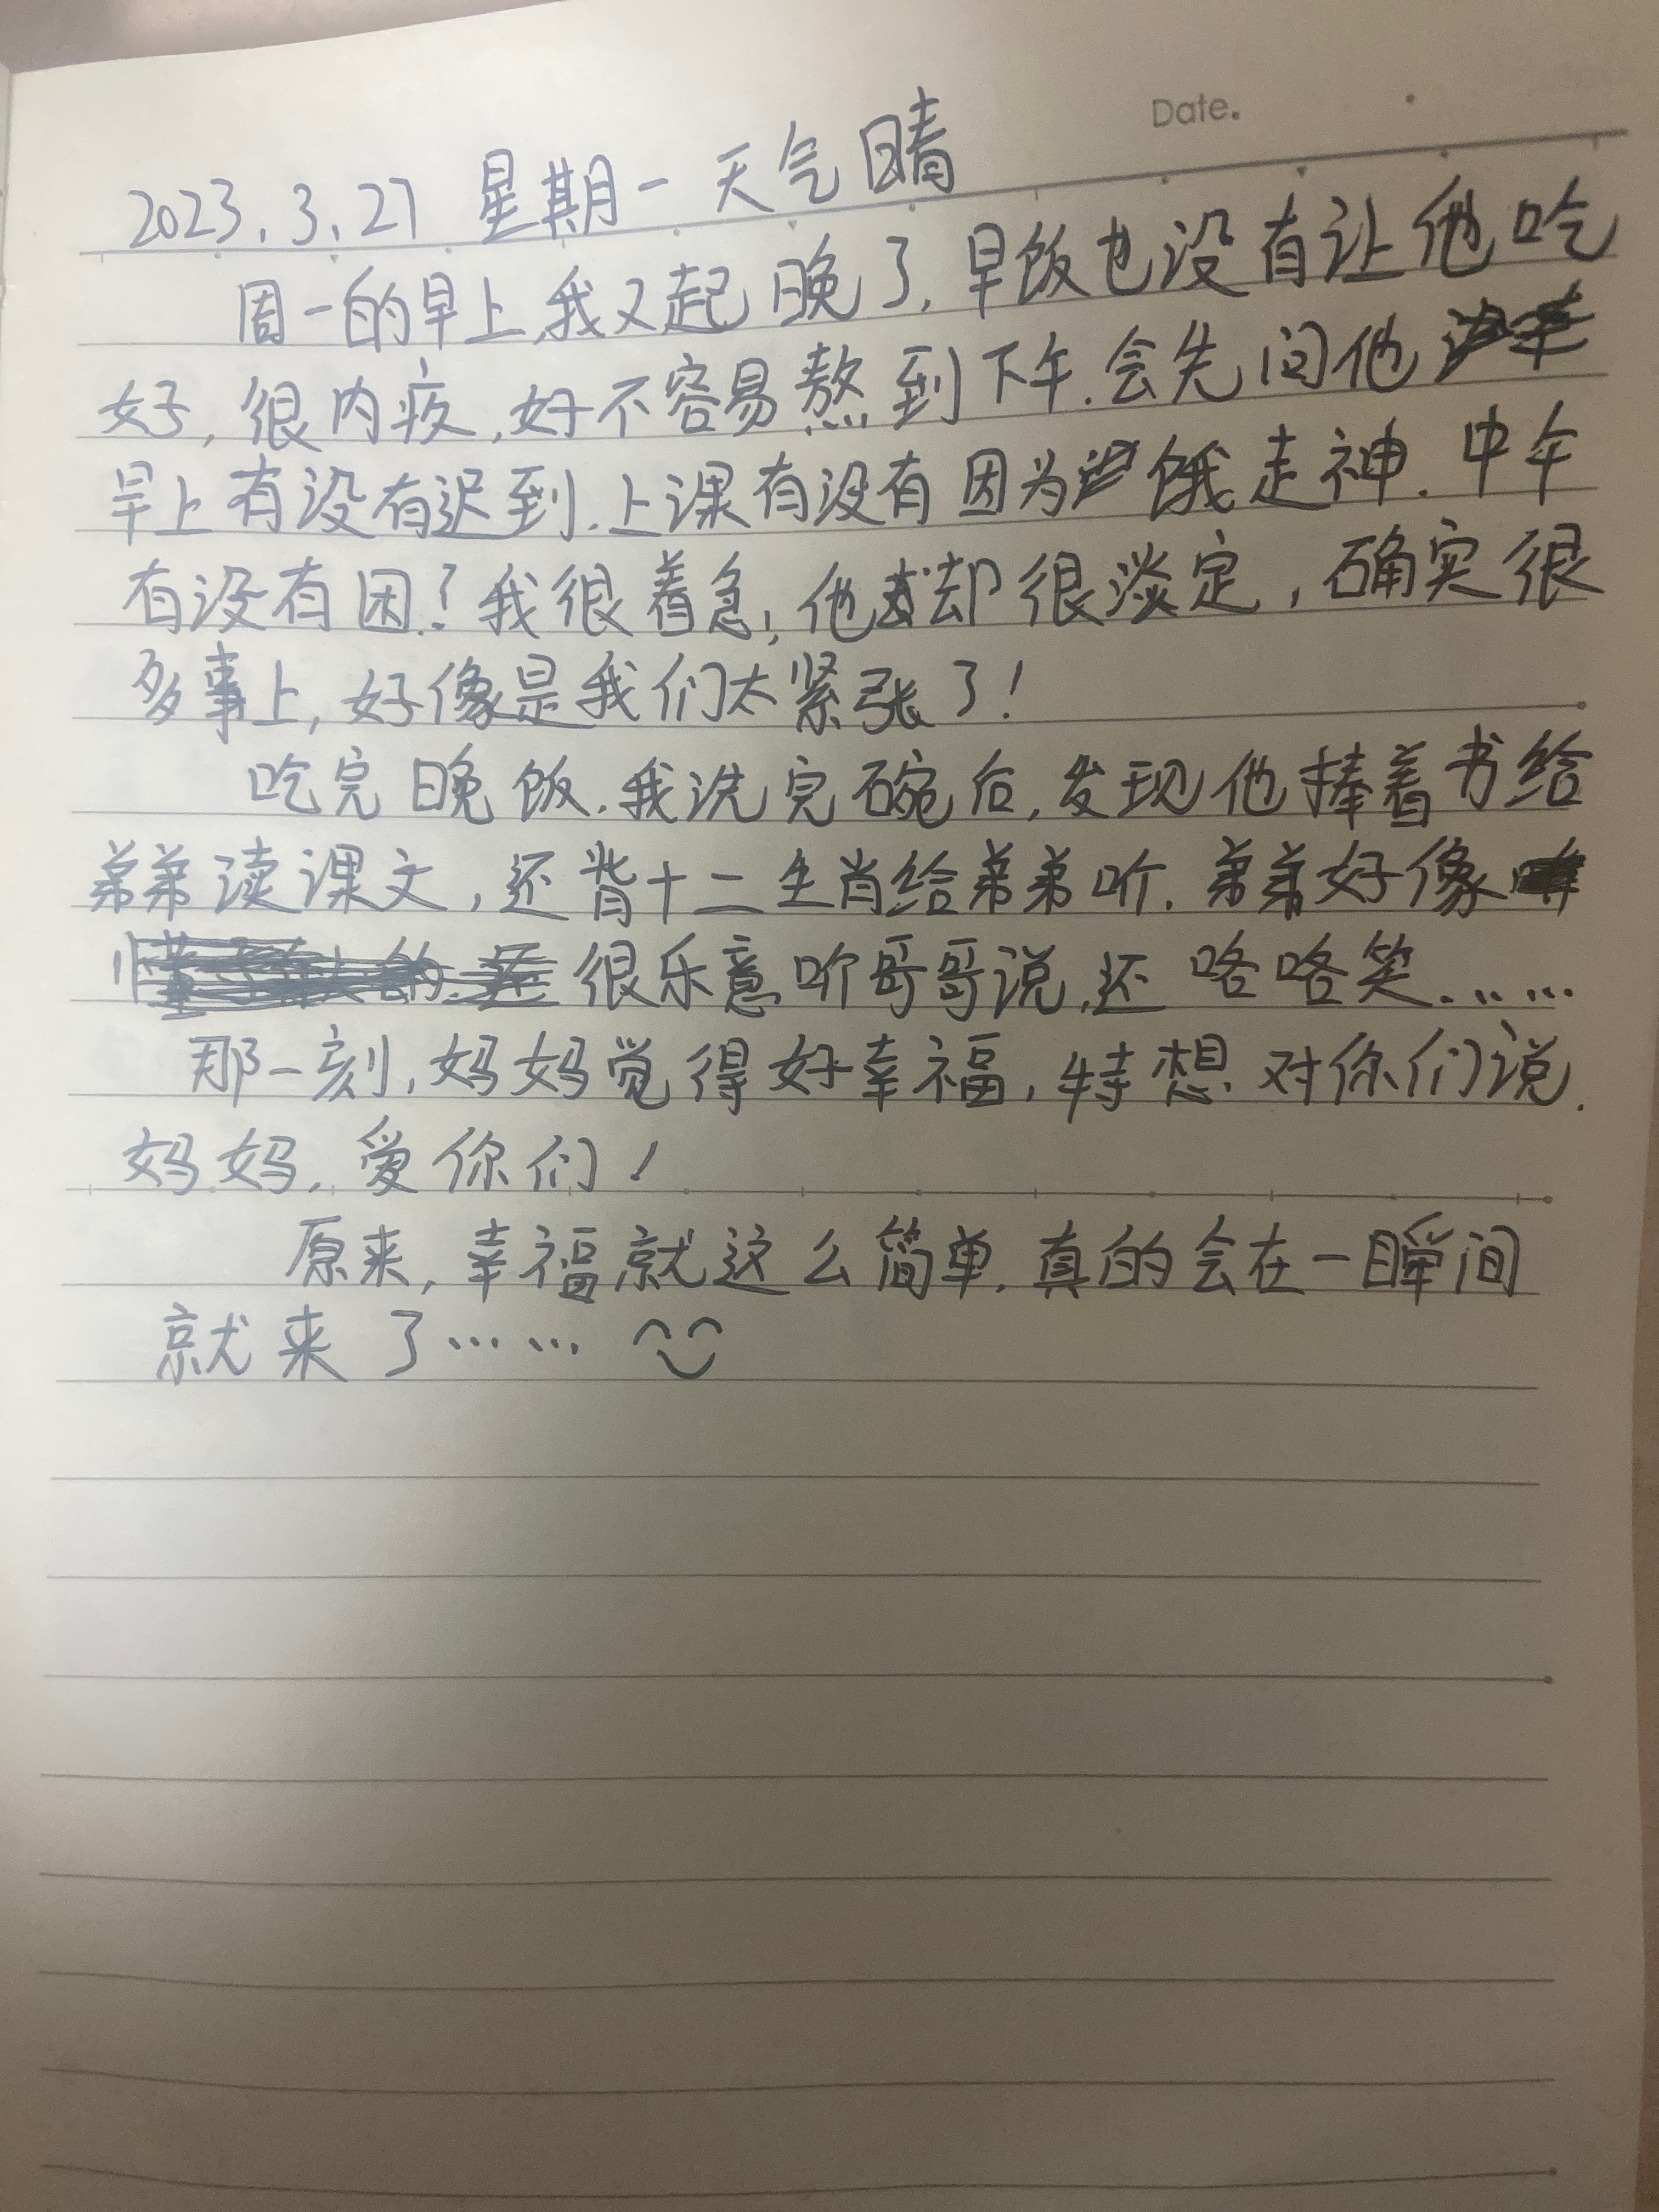 Date.
2023.3.27 星期一 天气晴
周一的早上,我又起晚了,早饭也没有让他吃
好,很内疚,好不容易熬到下午.会先问他
早上有没有迟到.上课有没有因为饿走神.中午
有没有困!我很着急,他却很淡定,确实很
多事上,好像是我们太紧张了!
吃完晚饭.我洗完碗后,发现他捧着书给
弟弟读课文,还背十二生肖给弟弟听.弟弟好像
很乐意听哥哥说,还咯咯笑……
那一刻,妈妈觉得好幸福,特想对你们说.
妈妈,爱你们!
原来,幸福就这么简单.真的会在一瞬间
就来了……